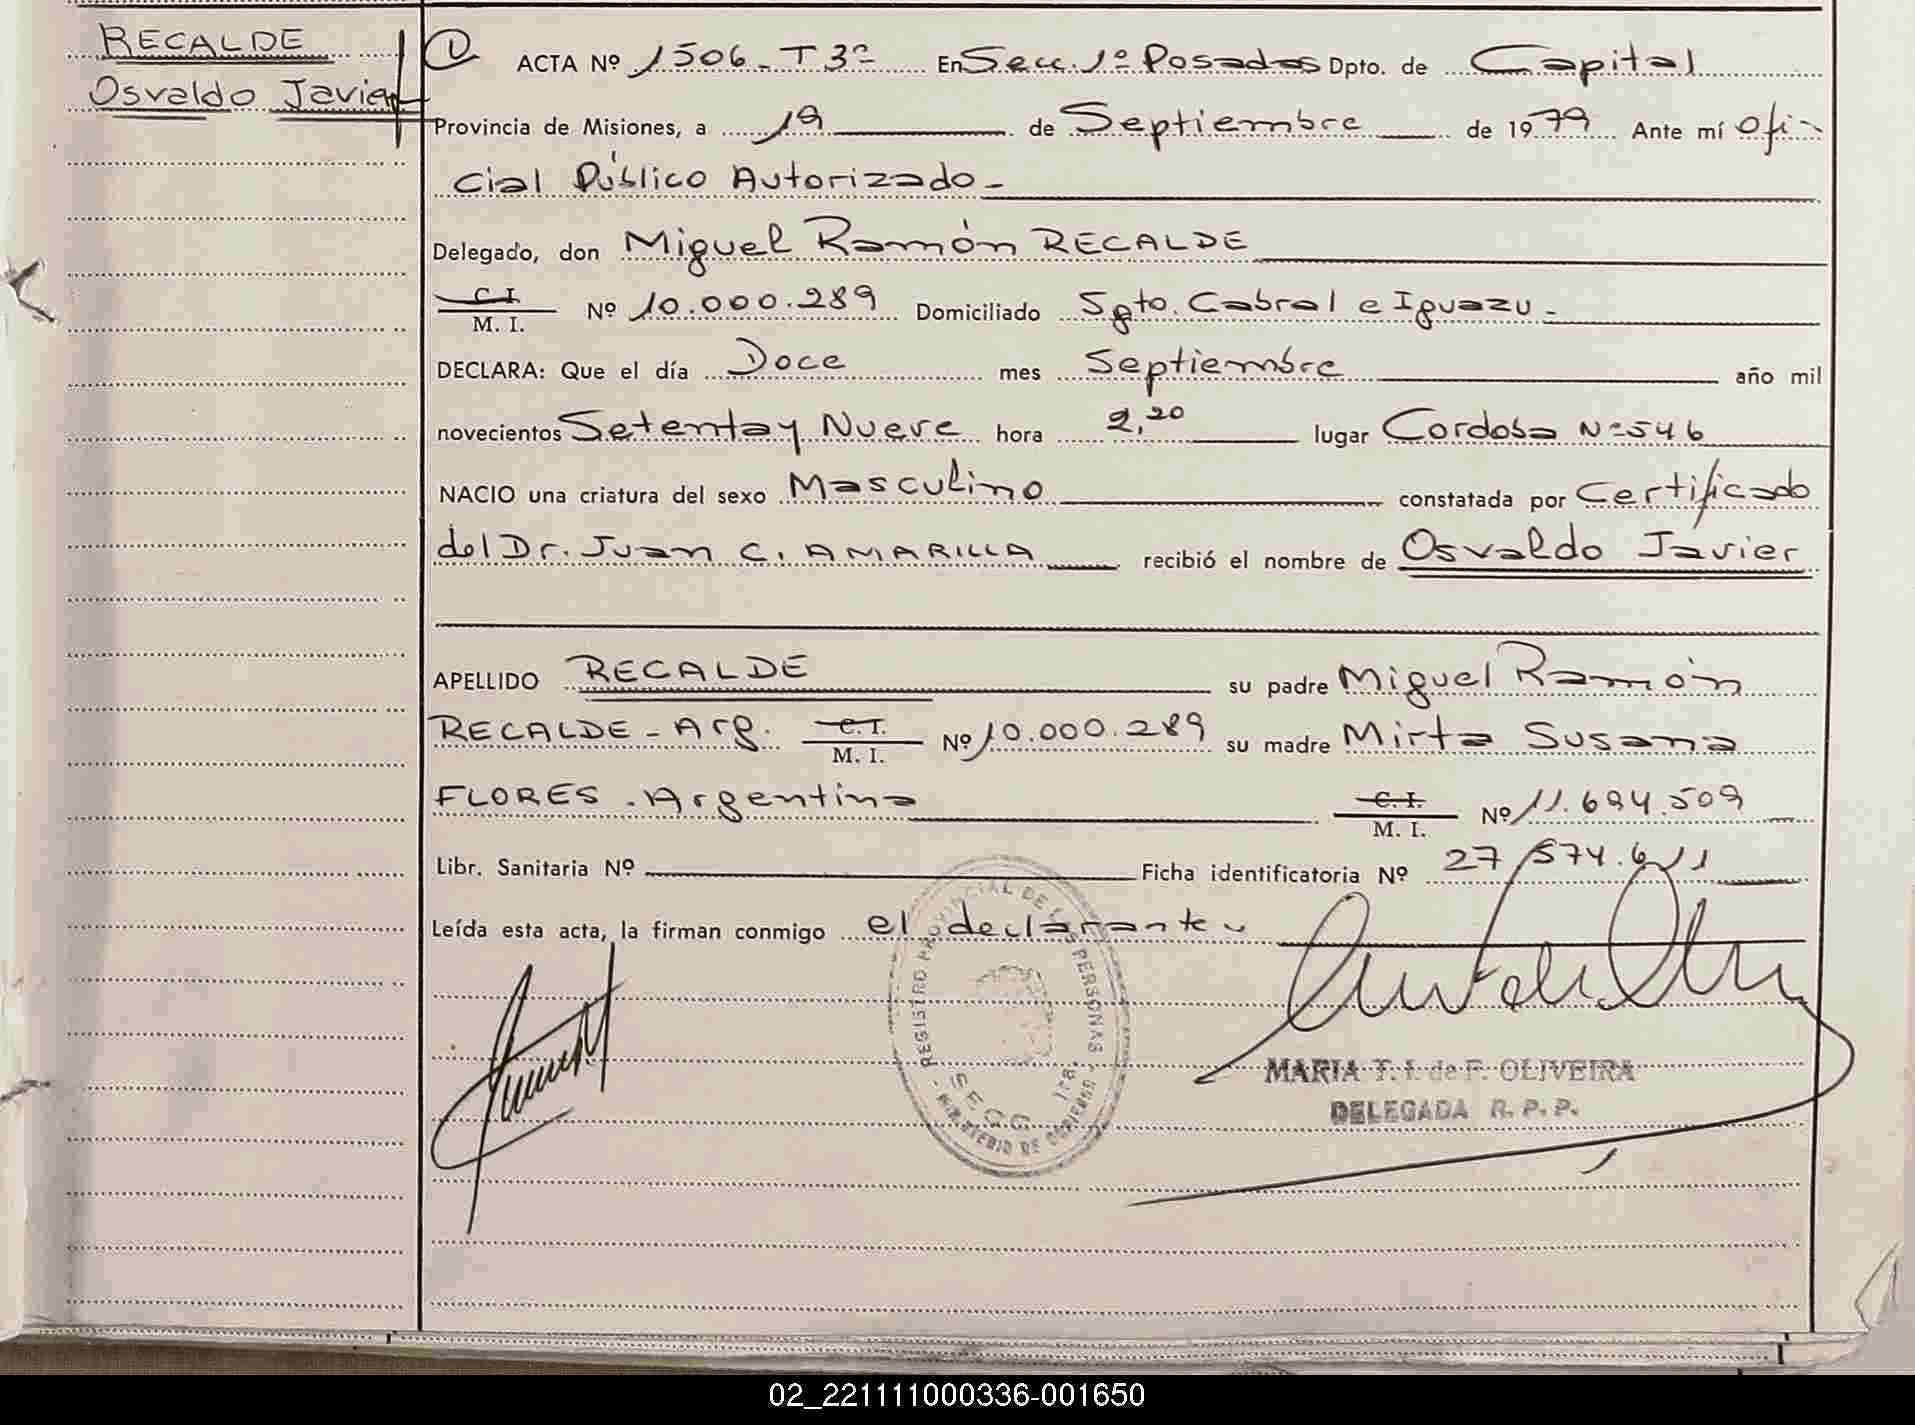 RECALDE
Osvaldo Javier
ACTA Nº 1506 - T 3º En Secc. 1º Posadas Dpto. de Capital
Provincia de Misiones, a 19 de Septiembre de 1979 Ante mí Ofi-
cial Público Autorizado -
Delegado, don Miguel Ramón RECALDE
C. I.
M. I. Nº 10.000.289 Domiciliado Sgto. Cabral e Iguazu -
DECLARA: Que el día Doce mes Septiembre año mil
novecientos Setenta y Nueve hora 2,20 lugar Cordoba Nº 546
NACIO una criatura del sexo Masculino constatada por Certificado
del Dr. Juan C. AMARILLA recibió el nombre de Osvaldo Javier
APELLIDO RECALDE su padre Miguel Ramón
RECALDE - Arg. C. I. M. I. Nº 10.000.289 su madre Mirta Susana
FLORES . Argentina C. I. M. I. Nº 11.694.509
Libr. Sanitaria Nº Ficha identificatoria Nº 27.574.611
Leída esta acta, la firman conmigo el declarante
REGISTRO PROVINCIAL DE LAS PERSONAS
SECC. 1ra.
MINISTERIO DE GOBIERNO
MARIA T. I. de F. OLIVEIRA
DELEGADA R. P. P.
02_221111000336-001650